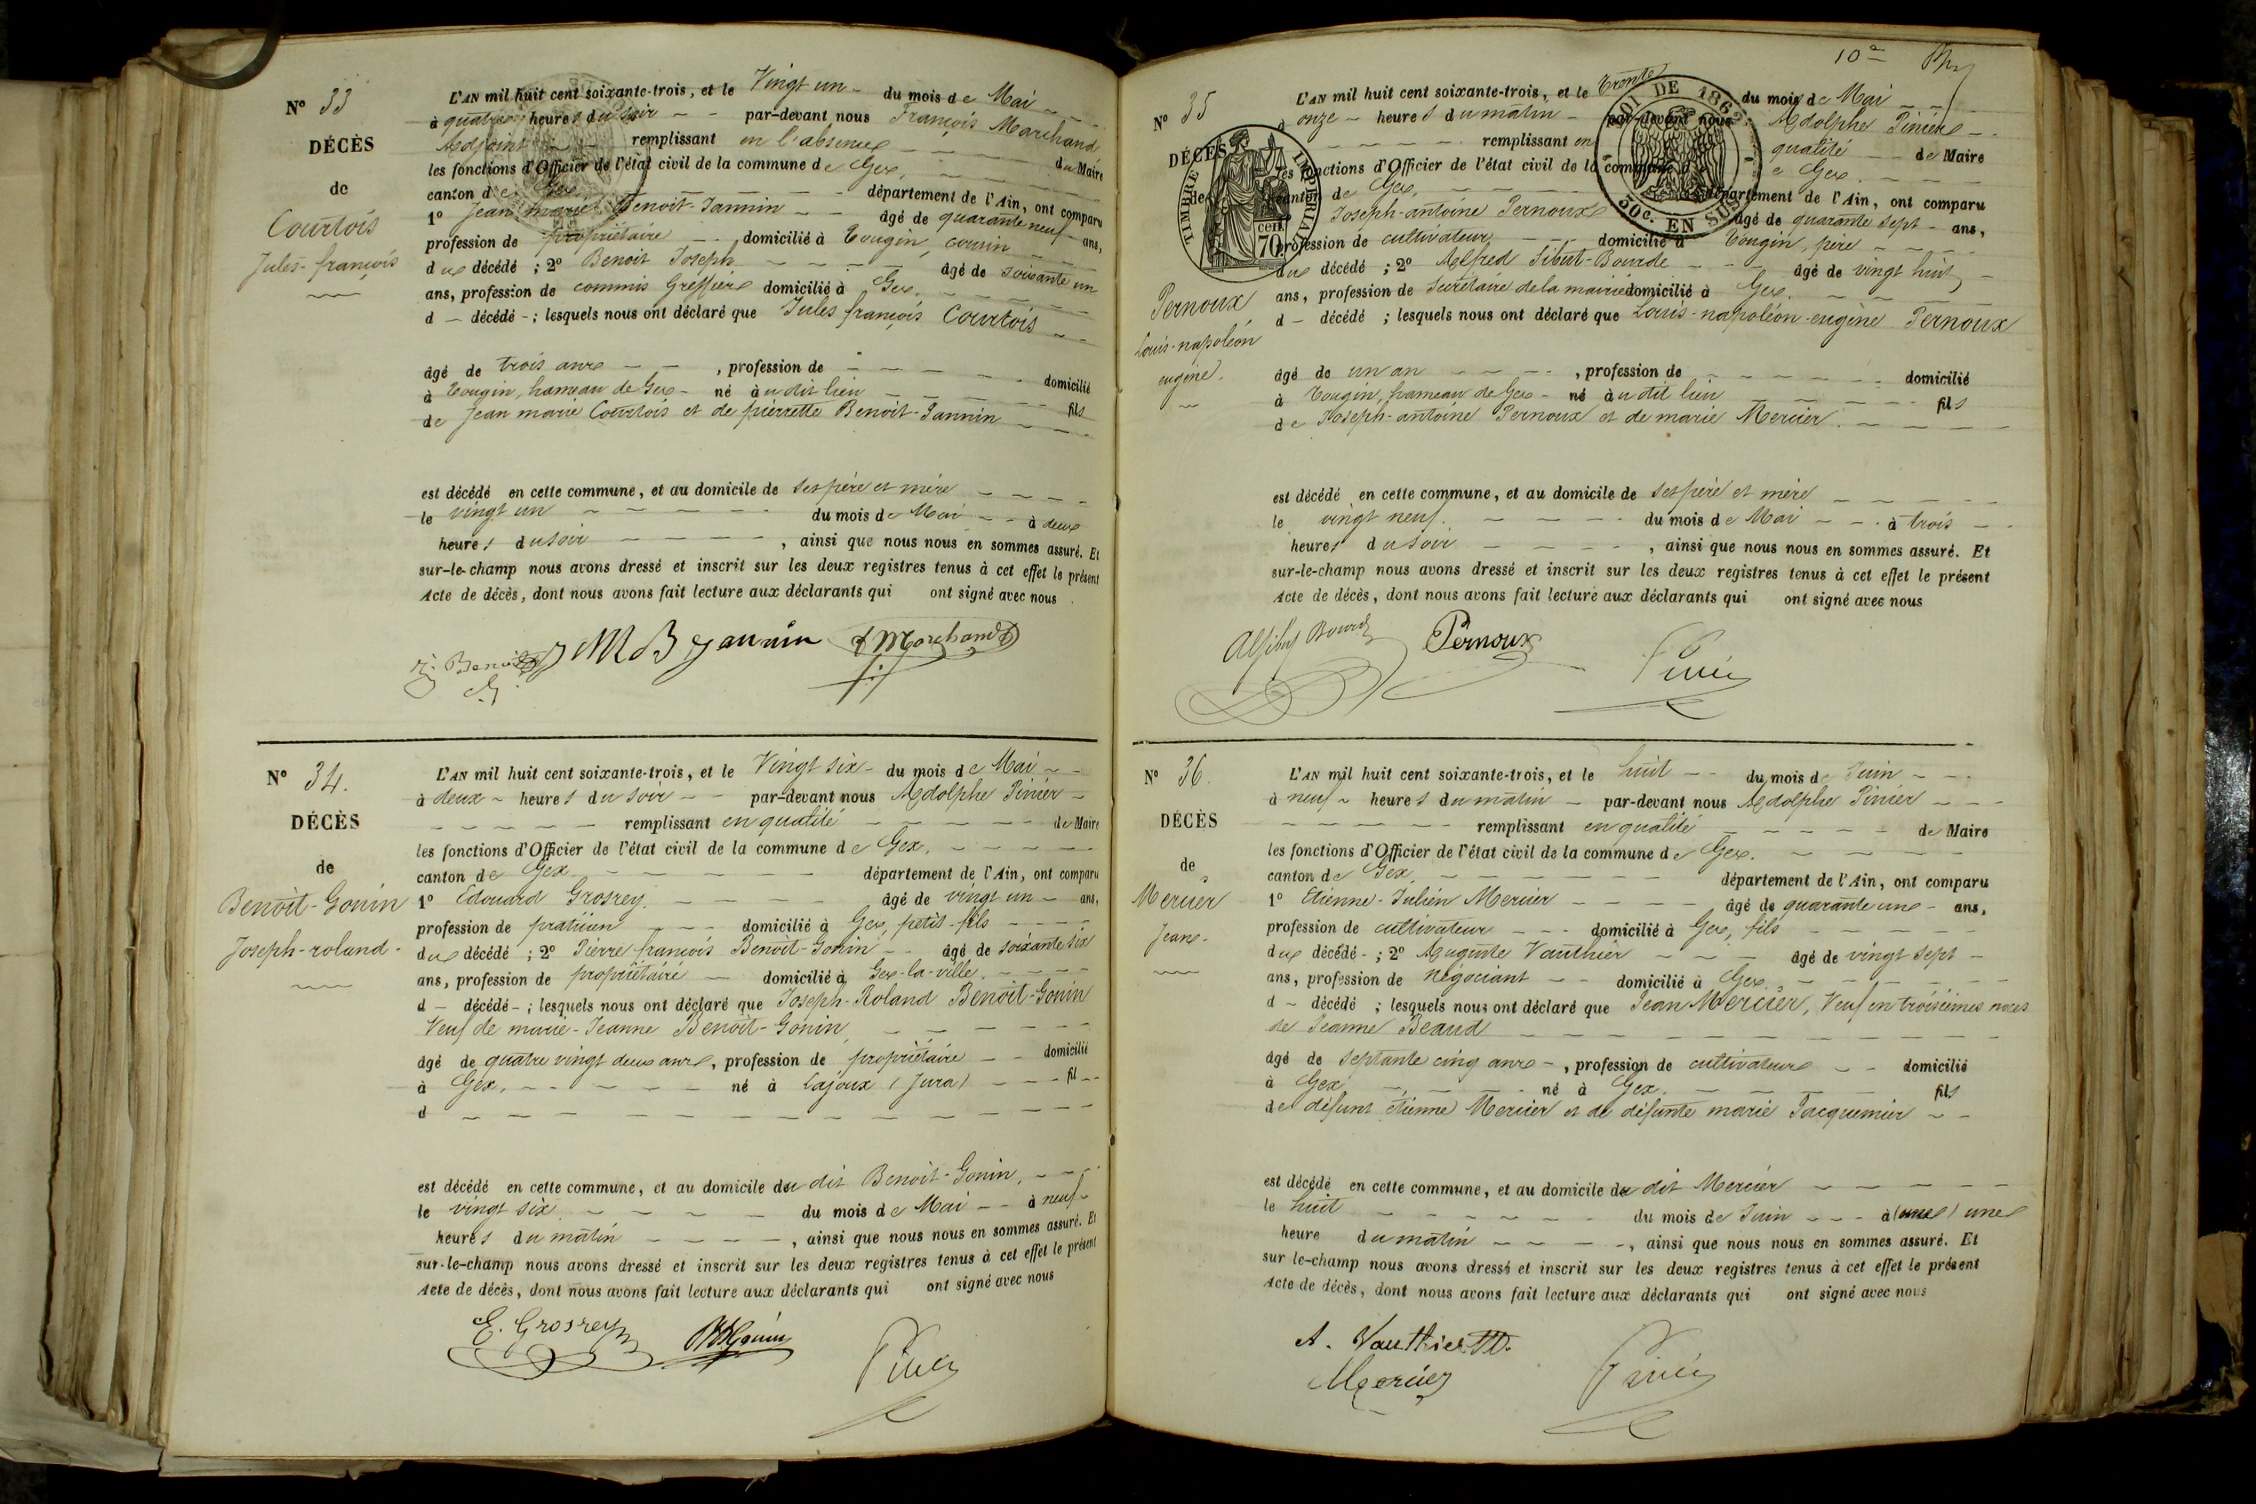 N° 33
DÉCÈS
de
Courtois
Jules-françois
L'AN mil huit cent soixante-trois, et le Vingt un du mois de Mai
à quatre heures du soir par-devant nous François Marchand
Adjoint remplissant en l'absence du Maire
les fonctions d'Officier de l'état civil de la commune de Gex,
canton de Gex département de l'Ain, ont comparu
1° Jean marie Benoit-Jannin âgé de quarante neuf ans,
profession de propriétaire domicilié à Tougin, cousin
du décédé ; 2° Benoit Joseph âgé de soixante un
ans, profession de commis Greffier domicilié à Gex.
d – décédé - ; lesquels nous ont déclaré que Jules françois Courtois
âgé de trois ans , profession de domicilié
à Tougin, hameau de Gex - né au dit lieu fils
de Jean marie Courtois et de pierrette Benoit-Jannin
est décédé en cette commune, et au domicile de ses père et mère
le vingt un du mois de Mai à deux
heures du soir , ainsi que nous nous en sommes assuré. Et
sur-le-champ nous avons dressé et inscrit sur les deux registres tenus à cet effet le présent
Acte de décès, dont nous avons fait lecture aux déclarants qui ont signé avec nous
J. Benoit J M B Jannin f Marchand
N° 34.
DÉCÈS
de
Benoît-Gonin
Joseph-roland
L'AN mil huit cent soixante-trois, et le Vingt six du mois de Mai
à deux heures du soir par-devant nous Adolphe Pinier
remplissant en qualité de Maire
les fonctions d'Officier de l'état civil de la commune de Gex,
canton de Gex département de l'Ain, ont comparu
1° Edouard Grosrey. âgé de vingt un ans,
profession de praticien domicilié à Gex, petit-fils
du décédé ; 2° Pierre françois Benoît-Gonin âgé de soixante six
ans, profession de propriétaire domicilié à Gex-la-ville.
d – décédé - ; lesquels nous ont déclaré que Joseph-Roland Benoît-Gonin
Veuf de marie-Jeanne Benoît-Gonin,
âgé de quatre vingt deux ans, profession de propriétaire domicilié
à Gex, né à Lajoux (Jura) fil
d
est décédé en cette commune, et au domicile du dit Benoit-Gonin,
le vingt six du mois de Mai à neuf
heures du matin , ainsi que nous nous en sommes assuré. Et
sur-le-champ nous avons dressé et inscrit sur les deux registres tenus à cet effet le présent
Acte de décès, dont nous avons fait lecture aux déclarants qui ont signé avec nous
E. Grosrey Gonin Pinier
10e
N° 35
DÉCÈS
de
Pernoux
Louis-napoléon
eugène.
TIMBRE IMPÉRIAL
70 cent
LOI DE 1862
50c. EN SUS
L'AN mil huit cent soixante-trois, et le Trente du mois de Mai
à onze heures du matin par-devant nous Adolphe Pinier
remplissant en qualité de Maire
les fonctions d'Officier de l'état civil de la commune de Gex.
canton de Gex, département de l'Ain, ont comparu
Joseph-antoine Pernoux âgé de quarante sept ans,
profession de cultivateur domicilié à Tougin, père
du décédé ; 2° Alfred Sibut-Bourde âgé de vingt huit
ans, profession de Secrétaire de la mairie domicilié à Gex.
d – décédé ; lesquels nous ont déclaré que Louis-napoléon-eugène Pernoux
âgé de un an , profession de domicilié
à Tougin, hameau de Gex - né au dit lieu fils
de Joseph-antoine Pernoux et de marie Mercier.
est décédé en cette commune, et au domicile de ses père et mère
le vingt neuf. du mois de Mai à trois
heures du soir , ainsi que nous nous en sommes assuré. Et
sur-le-champ nous avons dressé et inscrit sur les deux registres tenus à cet effet le présent
Acte de décès, dont nous avons fait lecture aux déclarants qui ont signé avec nous
Alf Sibut Bourde Pernoux Pinier
N° 36.
DÉCÈS
de
Mercier
Jean
L'AN mil huit cent soixante-trois, et le huit du mois de Juin
à neuf heures du matin par-devant nous Adolphe Pinier
remplissant en qualité de Maire
les fonctions d'Officier de l'état civil de la commune de Gex.
canton de Gex département de l'Ain, ont comparu
1° Etienne-Julien Mercier âgé de quarante un ans,
profession de cultivateur domicilié à Gex, fils
du décédé - ; 2° Auguste Vauthier âgé de vingt sept
ans, profession de négociant domicilié à Gex,
d – décédé ; lesquels nous ont déclaré que Jean Mercier, Veuf en troisièmes noces
de Jeanne Beaud
âgé de septante cinq ans , profession de cultivateur domicilié
à Gex né à Gex. fils
de défunt étienne Mercier et de défunte marie Jacquemier
est décédé en cette commune, et au domicile du dit Mercier
le huit du mois de Juin à (une) une
heure du matin , ainsi que nous nous en sommes assuré. Et
sur le-champ nous avons dressé et inscrit sur les deux registres tenus à cet effet le présent
Acte de décès, dont nous avons fait lecture aux déclarants qui ont signé avec nous
A. Vauthier
Mercier Pinier